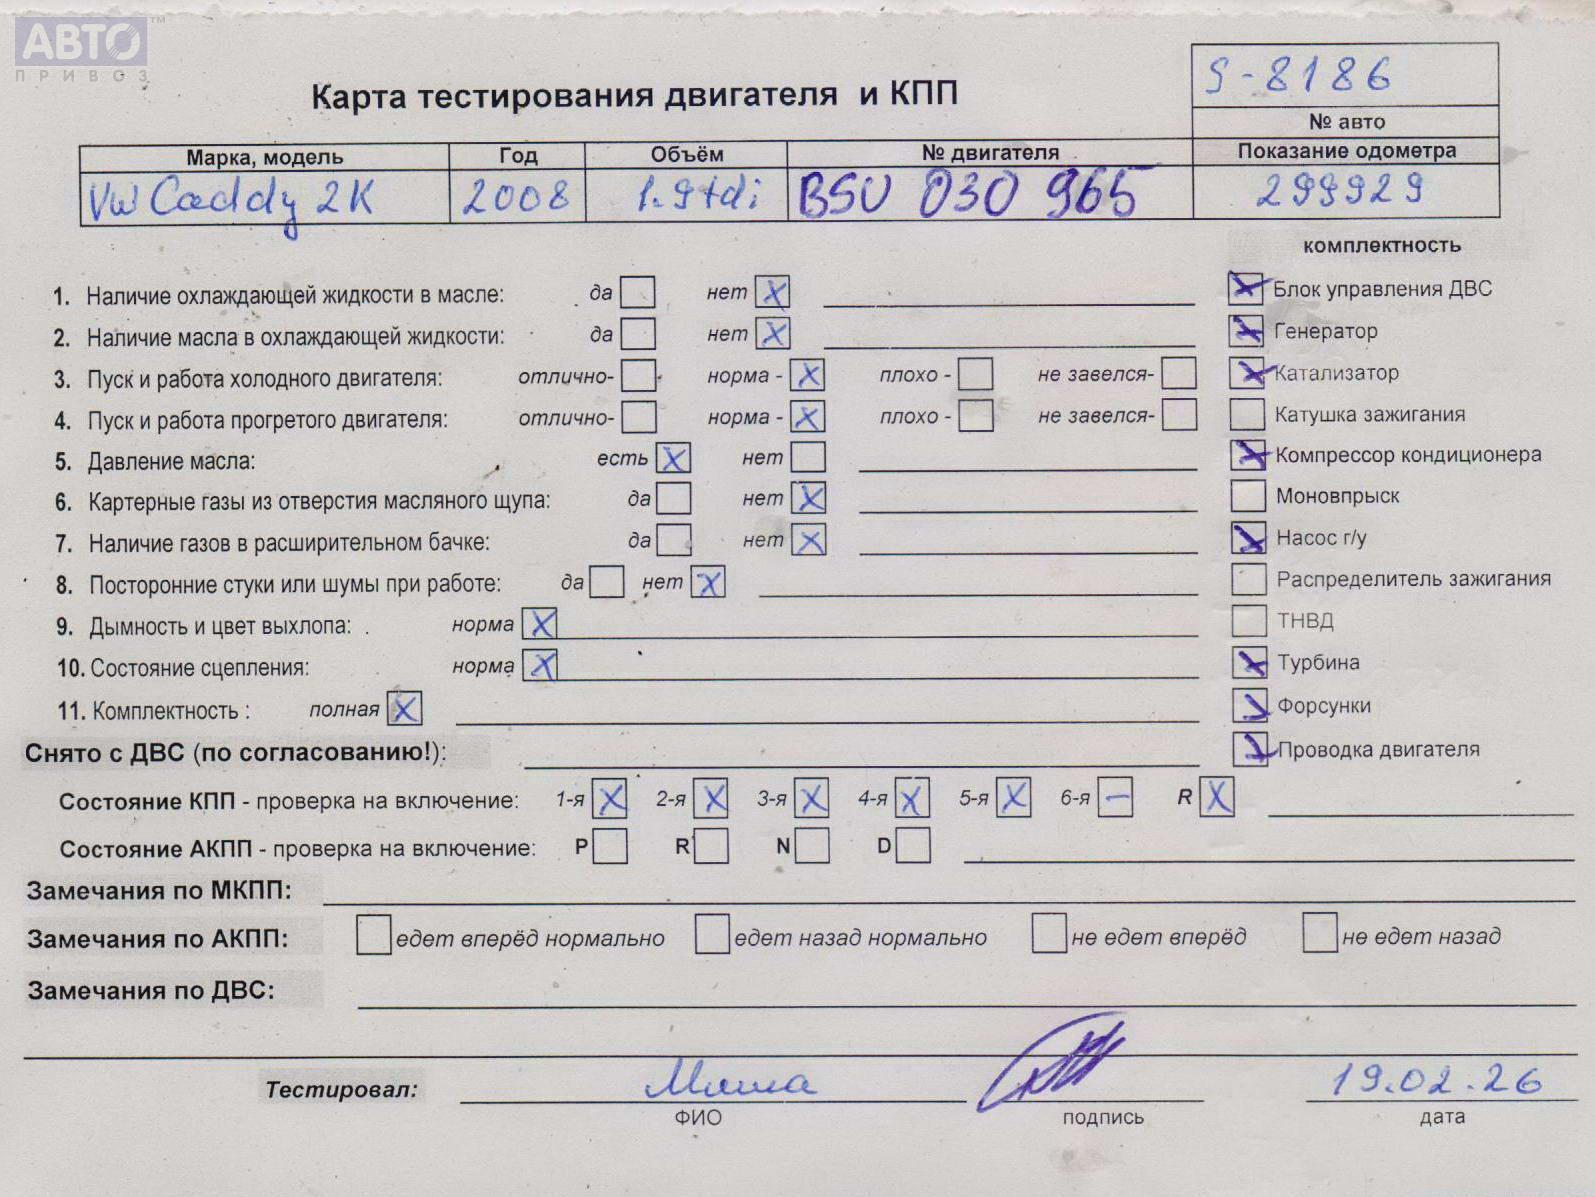 АВТО™
ПРИВОЗ
Карта тестирования двигателя и КПП
S-8186
№ авто
Марка, модель Год Объём № двигателя Показание одометра
VW Caddy 2K 2008 1.9 tdi BSU 030 965 299929
комплектность
1. Наличие охлаждающей жидкости в масле: да нет X
X Блок управления ДВС
2. Наличие масла в охлаждающей жидкости: да нет X
X Генератор
3. Пуск и работа холодного двигателя: отлично- норма - X плохо - не завелся-
X Катализатор
4. Пуск и работа прогретого двигателя: отлично- норма - X плохо - не завелся-
Катушка зажигания
5. Давление масла: есть X нет
X Компрессор кондиционера
6. Картерные газы из отверстия масляного щупа: да нет X
Моновпрыск
7. Наличие газов в расширительном бачке: да нет X
X Насос г/у
8. Посторонние стуки или шумы при работе: да нет X
Распределитель зажигания
9. Дымность и цвет выхлопа: норма X
ТНВД
10. Состояние сцепления: норма X
X Турбина
11. Комплектность : полная X
X Форсунки
Снято с ДВС (по согласованию!):
X Проводка двигателя
Состояние КПП - проверка на включение: 1-я X 2-я X 3-я X 4-я X 5-я X 6-я — R X
Состояние АКПП - проверка на включение: P R N D
Замечания по МКПП:
Замечания по АКПП: едет вперёд нормально едет назад нормально не едет вперёд не едет назад
Замечания по ДВС:
Тестировал: 19.02.26
ФИО подпись дата